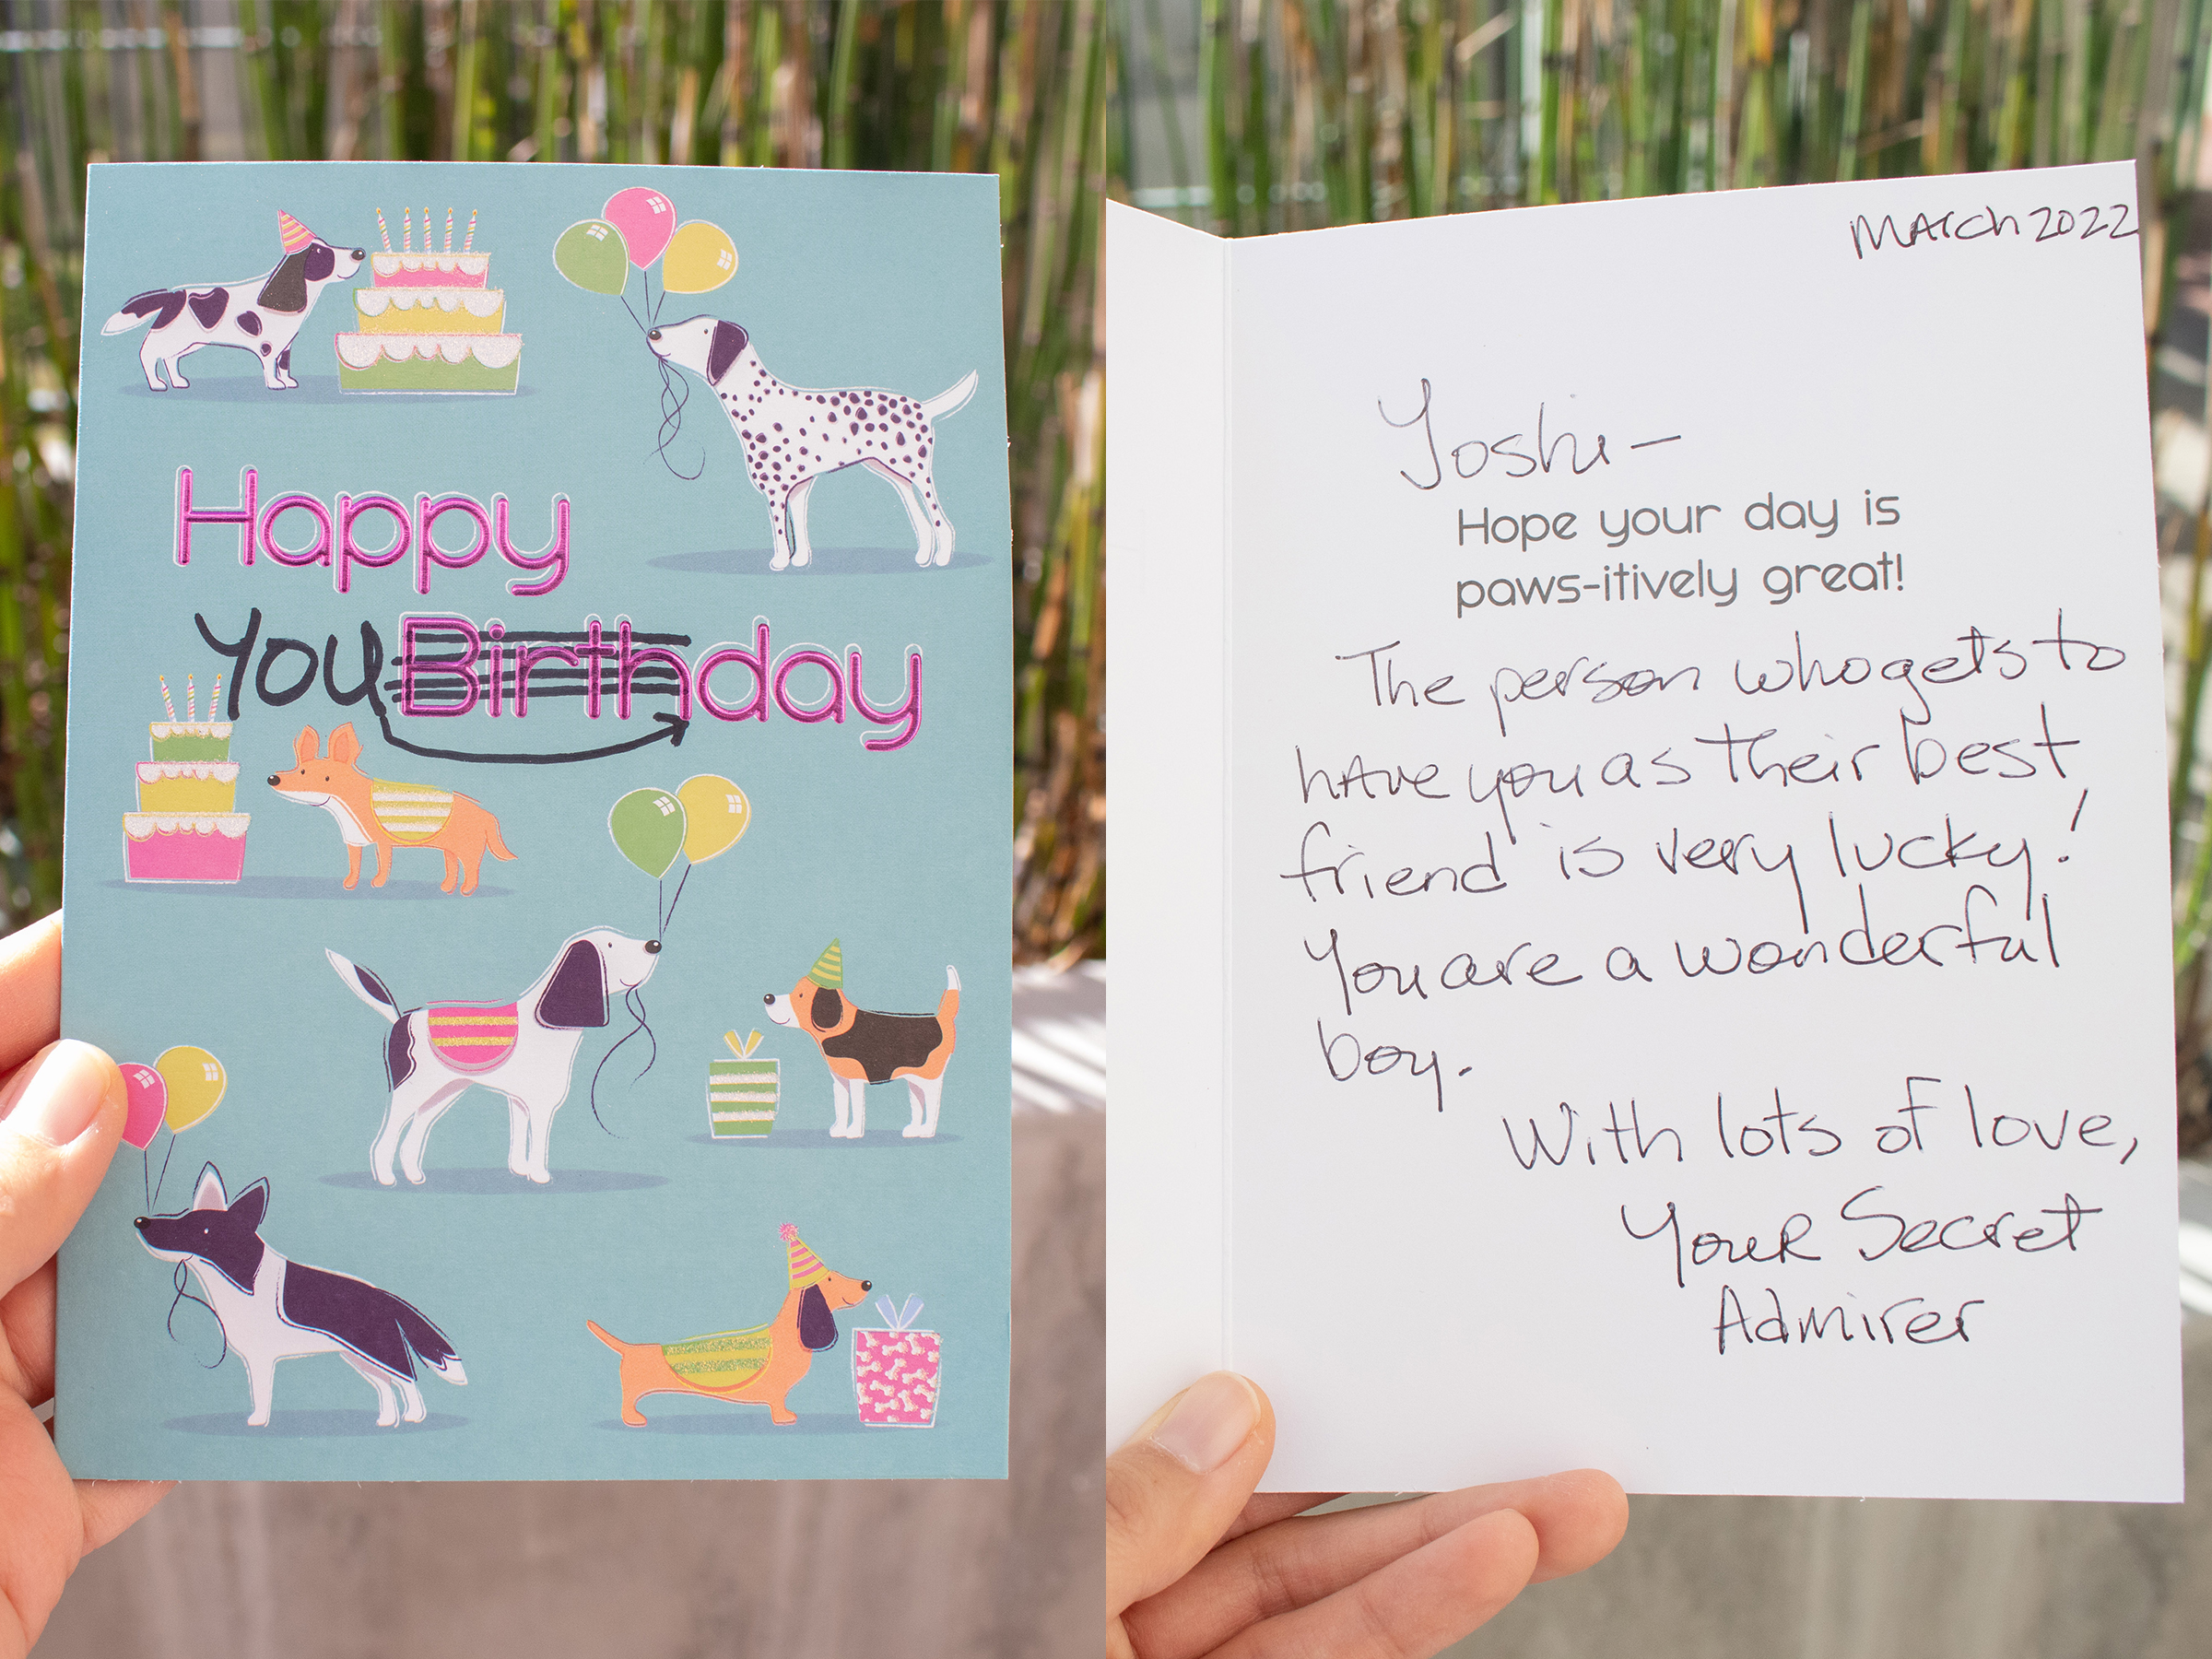 Happy
YOU Birthday
March 2022
Yoshi—
Hope your day is
paws-itively great!
The person who gets to
have you as their best
friend is very lucky!
You are a wonderful
boy.
With lots of love,
Your Secret
Admirer